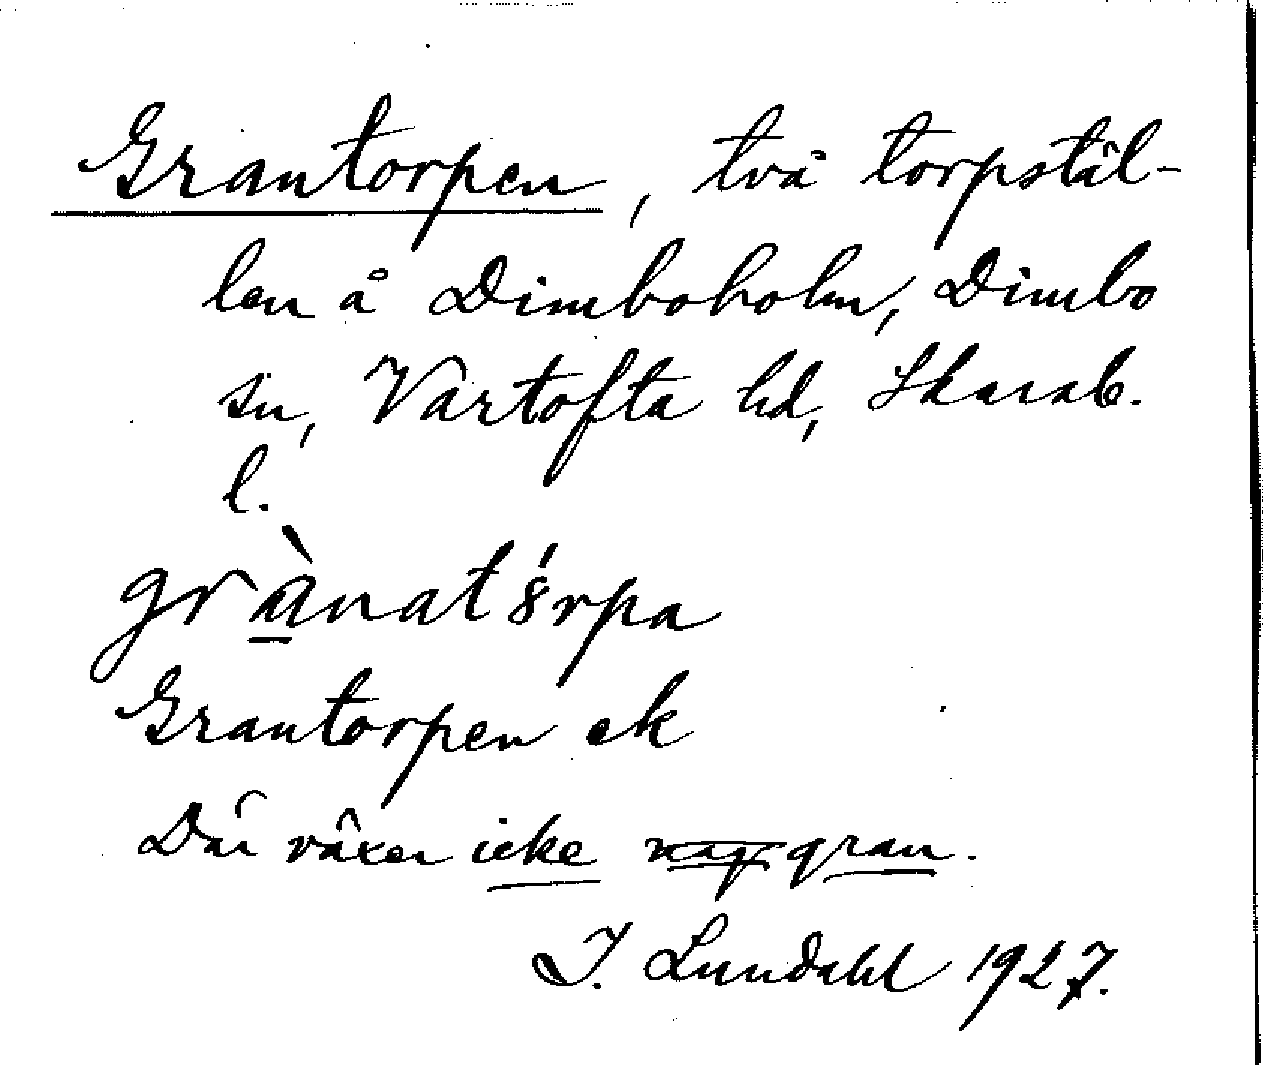 Grantorpen, två torpstäl-
len å Dimboholm, Dimbo
sn, Vartofta hd, Skarab.
l.
grànatórpa
Grantorpen ek
Där växer icke gran.
I. Lundahl 1927.